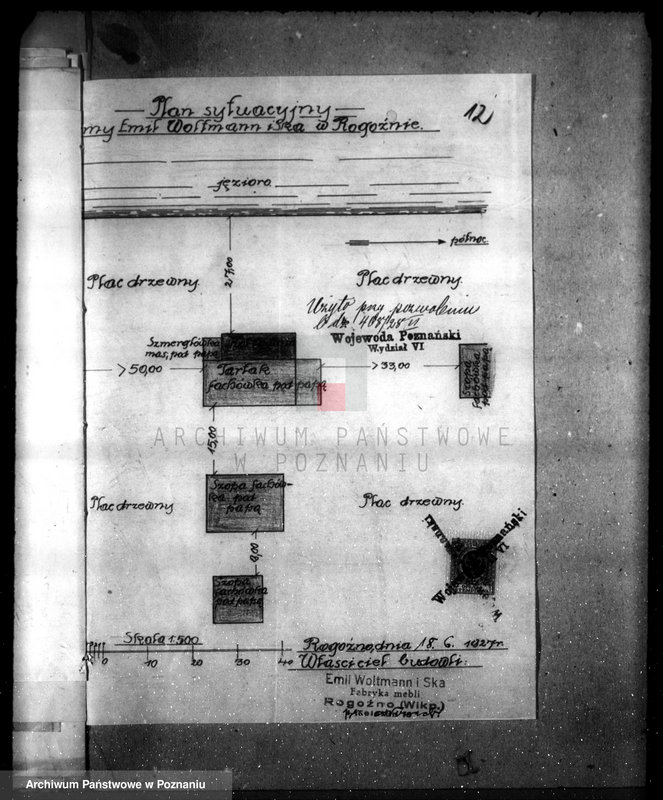 Plan sytuacyjny
my Emil Woltmann i Ska w Rogoźnie.
12
jezioro
północ
27,00
Plac drzewny.
Plac drzewny.
Użyto przy pozwoleniu
408/28 VI
Wojewoda Poznański
Wydział VI
Szmerglówka
mas, pod papą
> 50,00
Tartak
fachówka pod papą
> 33,00
Szopa
fachówka
pod papą
15,00
ARCHIWUM PAŃSTWOWE
W POZNANIU
Szopa fachów-
ka pod
papą
Plac drzewny.
Plac drzewny.
9,00
Szopa
fachówka
pod papą
Skala 1:500
0 10 20 30 40
Rogoźno, dnia 18. 6. 1927 r.
Właściciel budowli:
Emil Woltmann i Ska
Fabryka mebli
Rogoźno (Wlkp.)
Archiwum Państwowe w Poznaniu